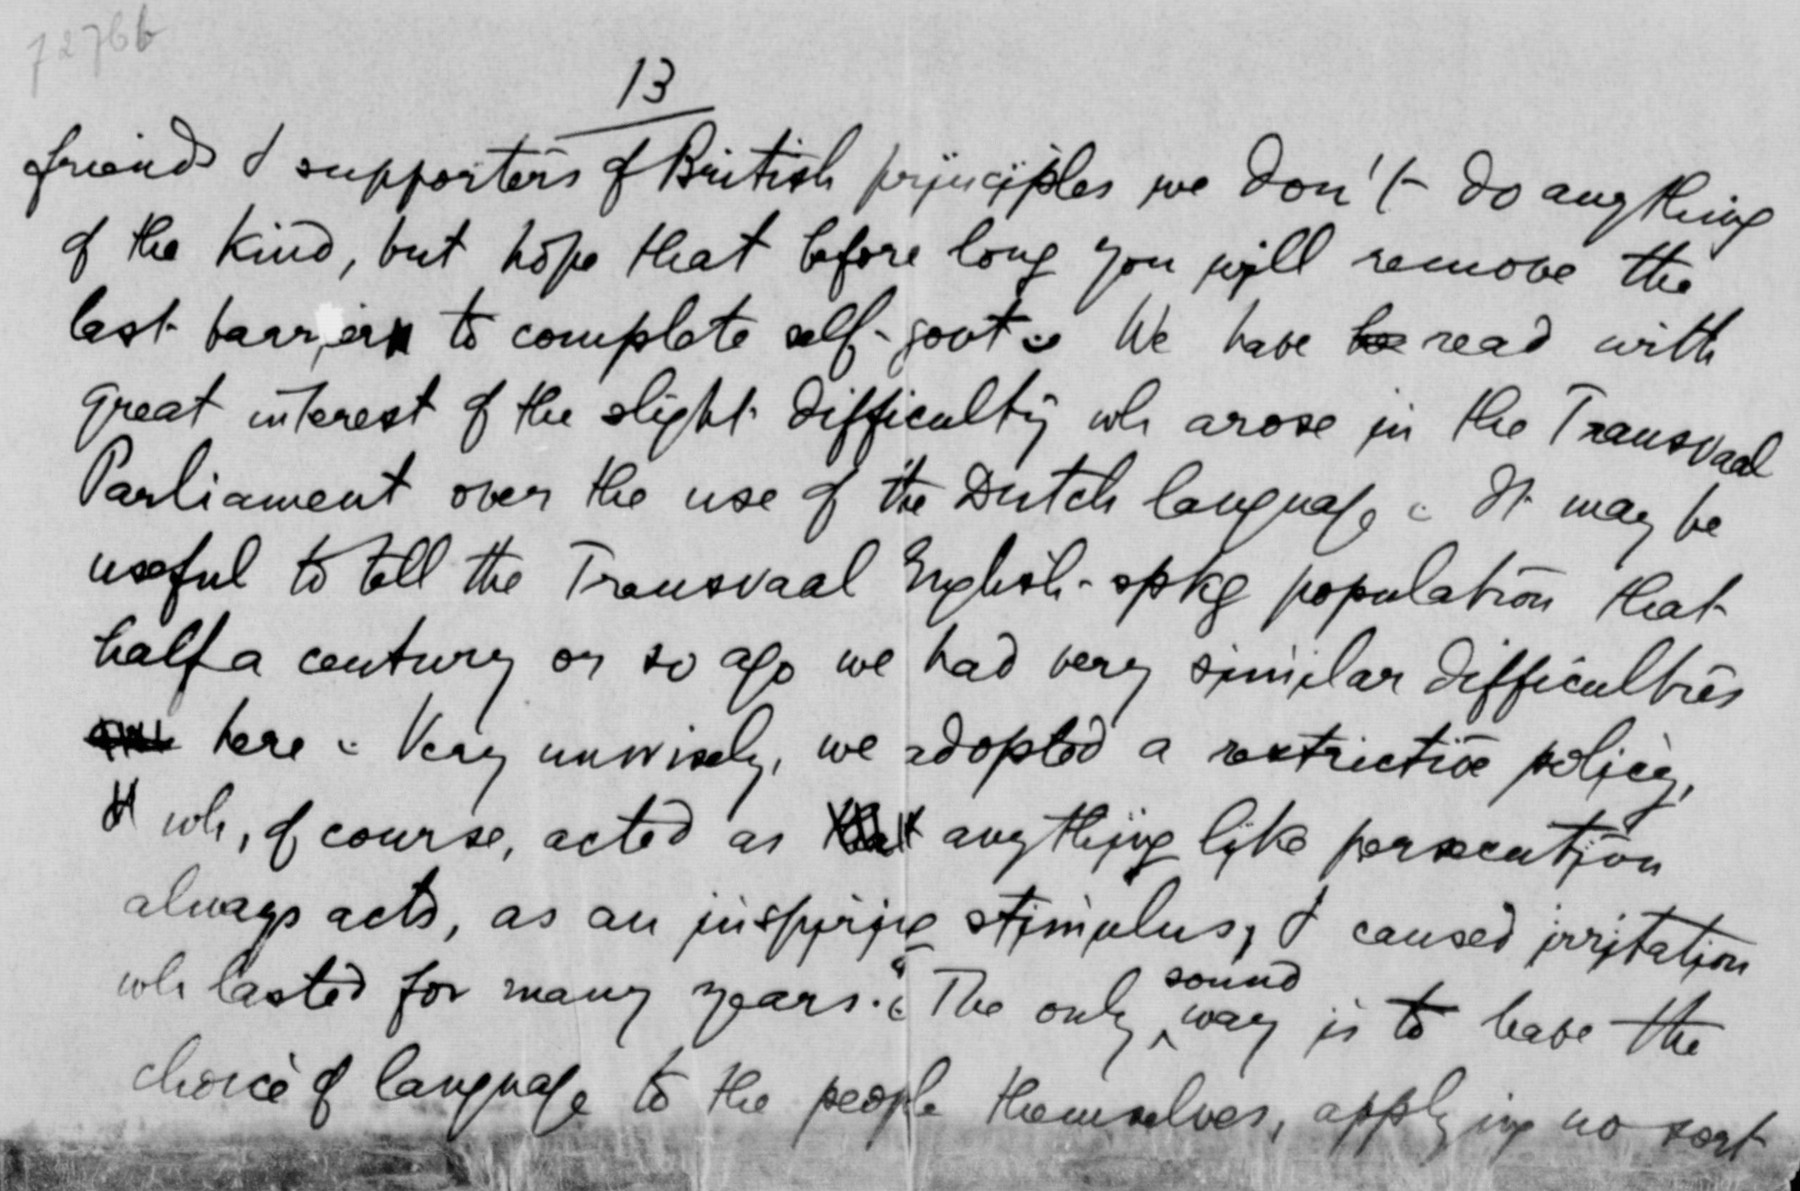 7276b
13
friends & supporters of British principles we don't do anything
of the kind, but hope that before long you will remove the
last barrier to complete self-govt. We have be read with
great interest of the slight difficulty wh arose in the Transvaal
Parliament over the use of the Dutch language. It may be
useful to tell the Transvaal English-spkg population that
half a century or so ago we had very similar difficulties
here. Very unwisely, we adopted a restrictive policy,
wh, of course, acted as anything like persecution
always acts, as an inspiring stimulus, & caused irritation
wh lasted for many years. The only sound way is to leave the
choice of language to the people themselves, applying no sort